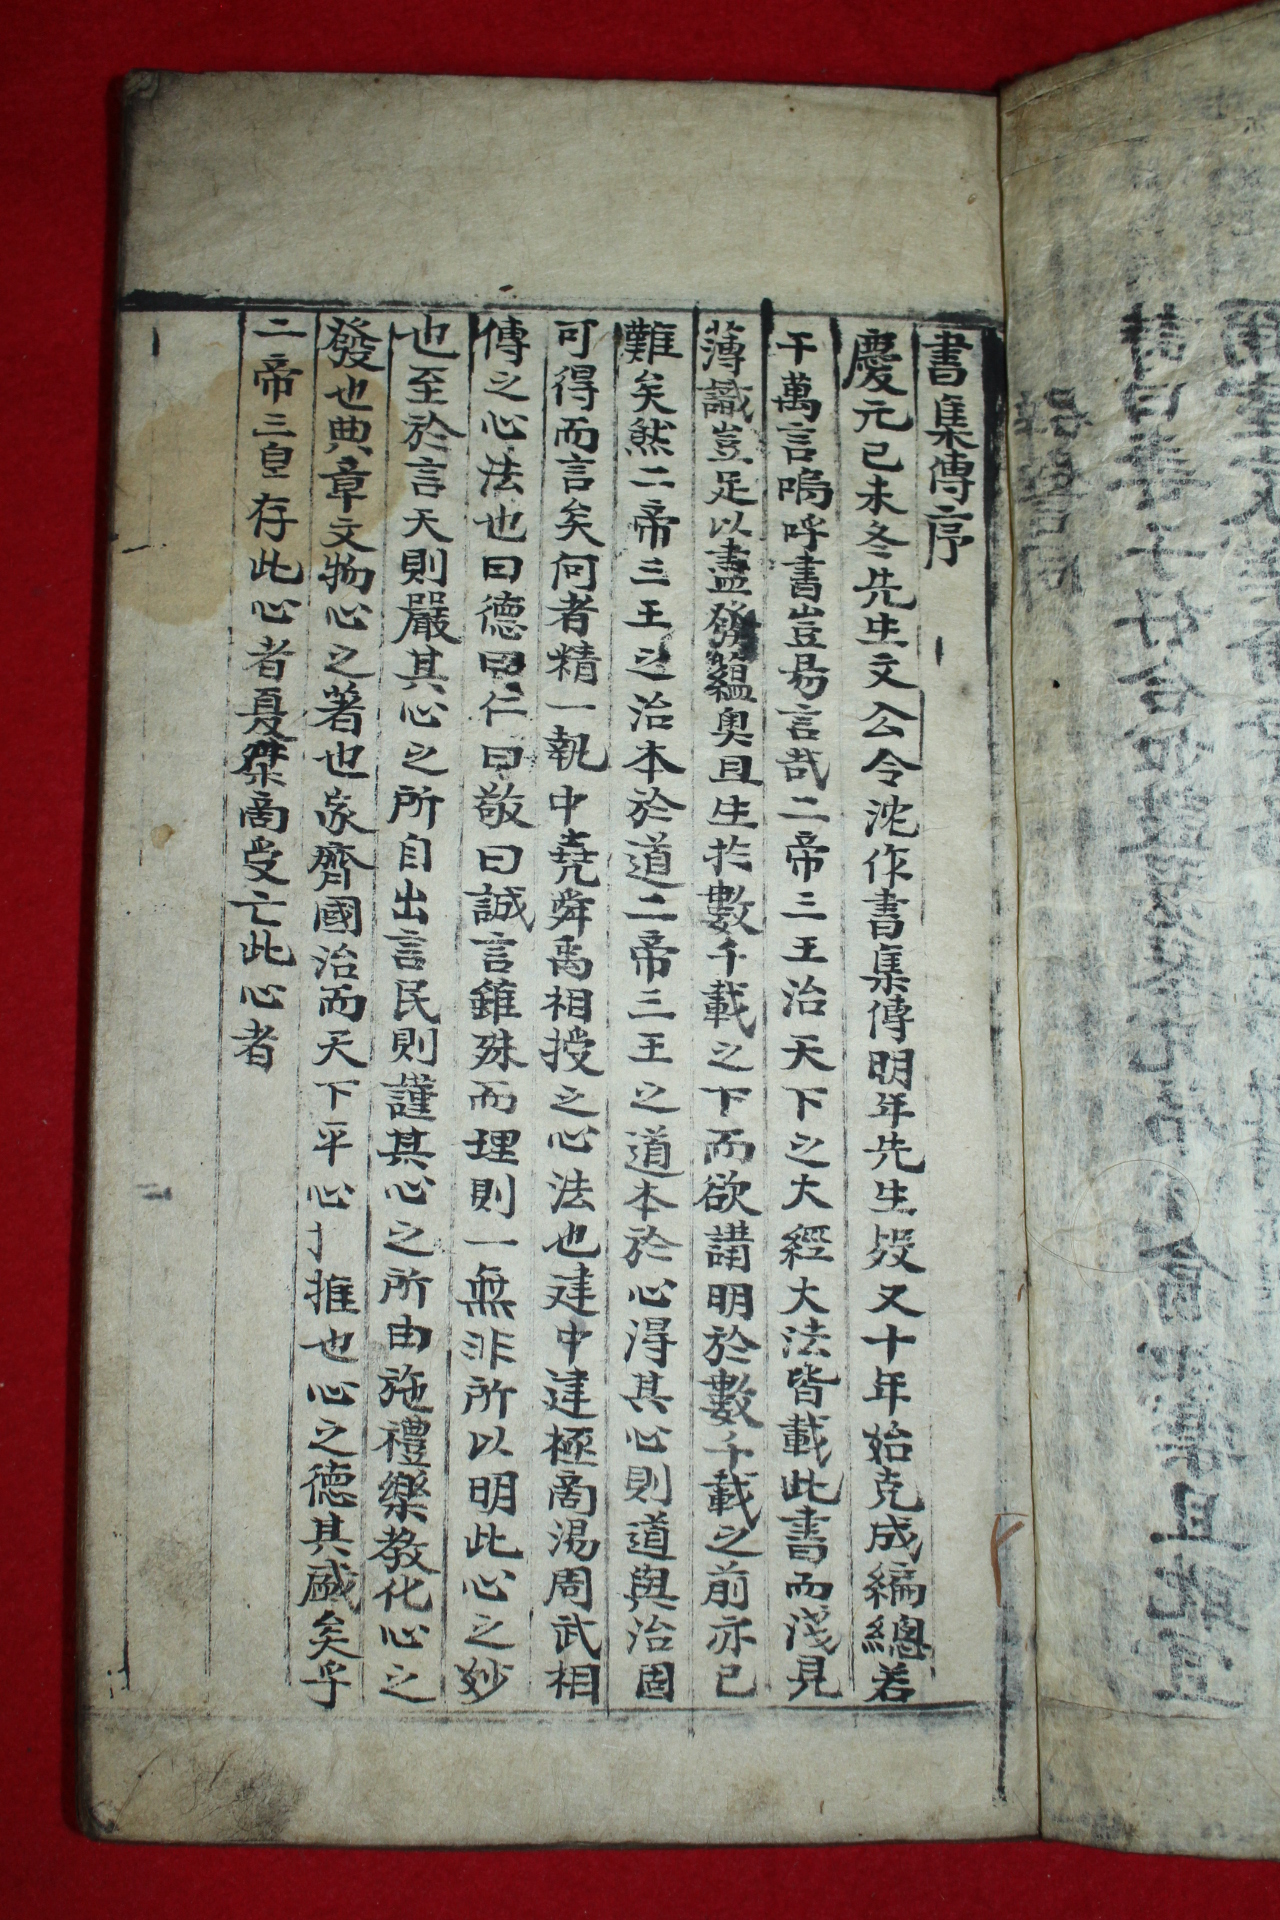 書集傳序
慶元己未冬先生文公令沈作書集傳明年先生歿又十年始克成編總若
干萬言嗚呼書豈易言哉二帝三王治天下之大經大法皆載此書而淺見
薄識豈足以盡發蘊奧且生於數千載之下而欲講明於數千載之前亦已
難矣然二帝三王之治本於道二帝三王之道本於心得其心則道與治固
可得而言矣何者精一執中堯舜禹相授之心法也建中建極商湯周武相
傳之心法也曰德曰仁曰敬曰誠言雖殊而理則一無非所以明此心之妙
也至於言天則嚴其心之所自出言民則謹其心之所由施禮樂教化心之
發也典章文物心之著也家齊國治而天下平心推也心之德其盛矣乎
二帝三存此心者夏桀商受亡此心者